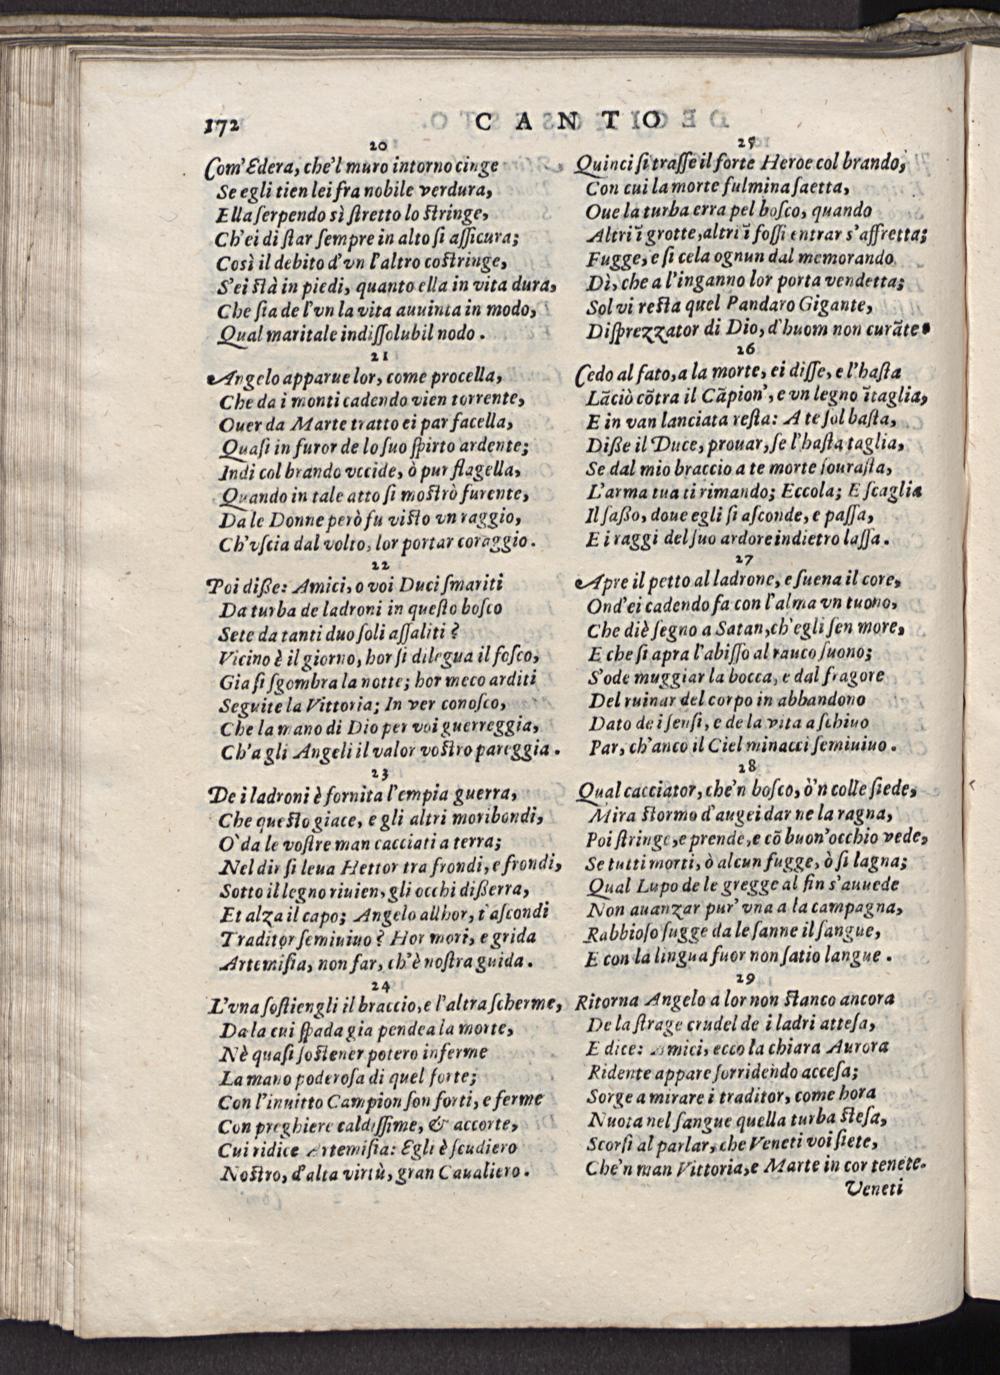 172
CANTO
20
Com'Edera, che'l muro intorno cinge
Se egli tien lei fra nobile verdura,
Ella serpendo sì stretto lo stringe,
Ch'ei di star sempre in alto si assicura;
Così il debito d'vn l'altro costringe,
S'ei stà in piedi, quanto ella in vita dura,
Che sia de l'vn la vita auuinta in modo,
Qual maritale indissolubil nodo.
21
Angelo apparue lor, come procella,
Che da i monti cadendo vien torrente,
Ouer da Marte tratto ei par facella,
Quasi in furor de lo suo spirto ardente;
Indi col brando vccide, ò pur flagella,
Quando in tale atto si mostrò furente,
Da le Donne però fu visto vn raggio,
Ch'vscia dal volto, lor portar coraggio.
22
Poi disse: Amici, o voi Duci smariti
Da turba de ladroni in questo bosco
Sete da tanti duo soli assaliti?
Vicino è il giorno, hor si dilegua il fosco,
Gia si sgombra la notte; hor meco arditi
Seguite la Vittoria; In ver conosco,
Che la mano di Dio per voi guerreggia,
Ch'a gli Angeli il valor vostro pareggia.
23
De i ladroni è fornita l'empia guerra,
Che questo giace, e gli altri moribondi,
O' da le vostre man cacciati a terra;
Nel dir si leua Hettor tra frondi, e frondi,
Sotto il legno riuien, gli occhi disserra,
Et alza il capo; Angelo allhor, t'ascondi
Traditor semiuiuo? Hor mori, e grida
Artemisia, non far, ch'è nostra guida.
24
L'vna sostiengli il braccio, e l'altra scherme,
Da la cui spada gia pendea la morte,
Nè quasi sostener potero inferme
La mano poderosa di quel forte;
Con l'inuitto Campion son forti, e ferme
Con preghiere caldissime, & accorte,
Cui ridice Artemisia: Egli è scudiero
Nostro, d'alta virtù, gran Caualiero.
25
Quinci si trasse il forte Heroe col brando,
Con cui la morte fulmina saetta,
Oue la turba erra pel bosco, quando
Altri ĩ grotte, altri ĩ fossi entrar s'affretta;
Fugge, e si cela ognun dal memorando
Dì, che a l'inganno lor porta vendetta;
Sol vi resta quel Pandaro Gigante,
Disprezzator di Dio, d'huom non curãte.
26
Cedo al fato, a la morte, ei disse, e l'hasta
Lãciò cõtra il Cãpion', e vn legno ĩtaglia,
E in van lanciata resta: A te sol basta,
Disse il Duce, prouar, se l'hasta taglia,
Se dal mio braccio a te morte sourasta,
L'arma tua ti rimando; Eccola; E scaglia
Il sasso, doue egli si asconde, e passa,
E i raggi del suo ardore indietro lassa.
27
Apre il petto al ladrone, e suena il core,
Ond'ei cadendo fa con l'alma vn tuono,
Che diè segno a Satan, ch'egli sen more,
E che si apra l'abisso al rauco suono;
S'ode muggiar la bocca, e dal fragore
Del ruinar del corpo in abbandono
Dato de i sensi, e de la vita a schiuo
Par, ch'anco il Ciel minacci semiuiuo.
28
Qual cacciator, che'n bosco, ò'n colle siede,
Mira stormo d'augei dar ne la ragna,
Poi stringe, e prende, e cõ buon'occhio vede,
Se tutti morti, ò alcun fugge, ò si lagna;
Qual Lupo de le gregge al fin s'auuede
Non auanzar pur' vna a la campagna,
Rabbioso sugge da le sanne il sangue,
E con la lingua fuor non satio langue.
29
Ritorna Angelo a lor non stanco ancora
De la strage crudel de i ladri attesa,
E dice: Amici, ecco la chiara Aurora
Ridente appare sorridendo accesa;
Sorge a mirare i traditor, come hora
Nuota nel sangue quella turba stesa,
Scorsi al parlar, che Veneti voi siete,
Che'n man Vittoria, e Marte in cor tenete.
Veneti